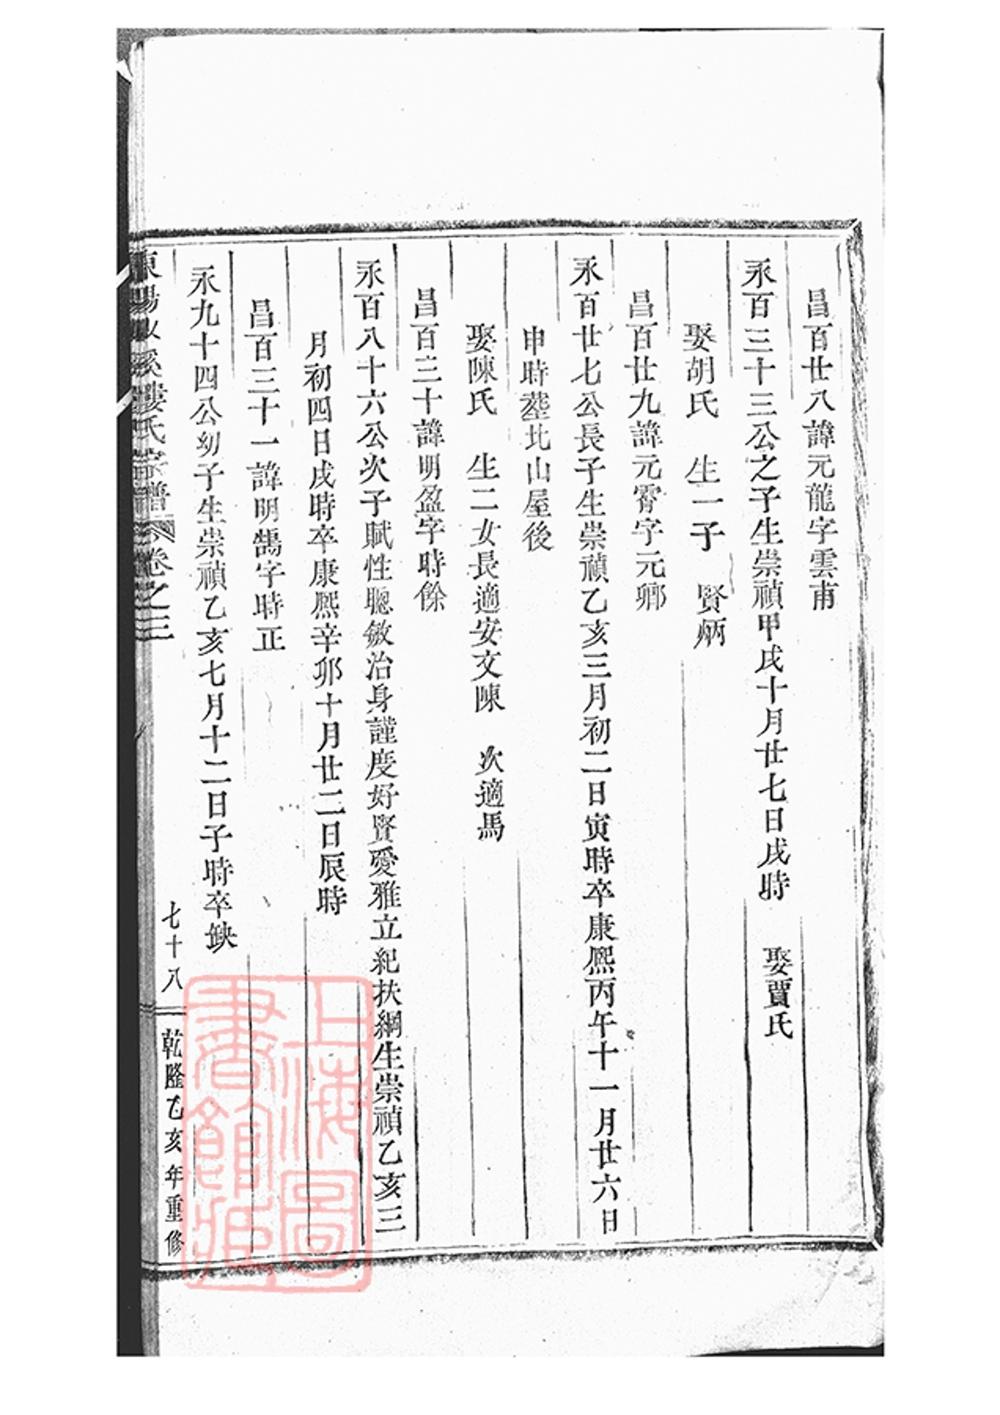 昌百廿八諱元龍字雲甫
永百三十三公之子生崇禎甲戌十月廿七日戌時 娶賈氏
娶胡氏 生一子 賢炳
昌百廿九諱元霄字元卿
永百廿七公長子生崇禎乙亥三月初二日寅時卒康熙丙午十一月廿六日
申時塟北山屋後
娶陳氏 生二女長適安文陳 次適馬
昌百三十諱明盈字時餘
永百八十六公次子賦性聰敏治身謹度好賢愛雅立紀扶綱生崇禎乙亥三
月初四日戌時卒康熙辛卯十月廿二日辰時
昌百三十一諱明鵠字時正
永九十四公幼子生崇禎乙亥七月十二日子時卒缺
東陽 溪 氏宗譜 卷之三 七十八 乾隆乙亥年重修
上海圖書館藏